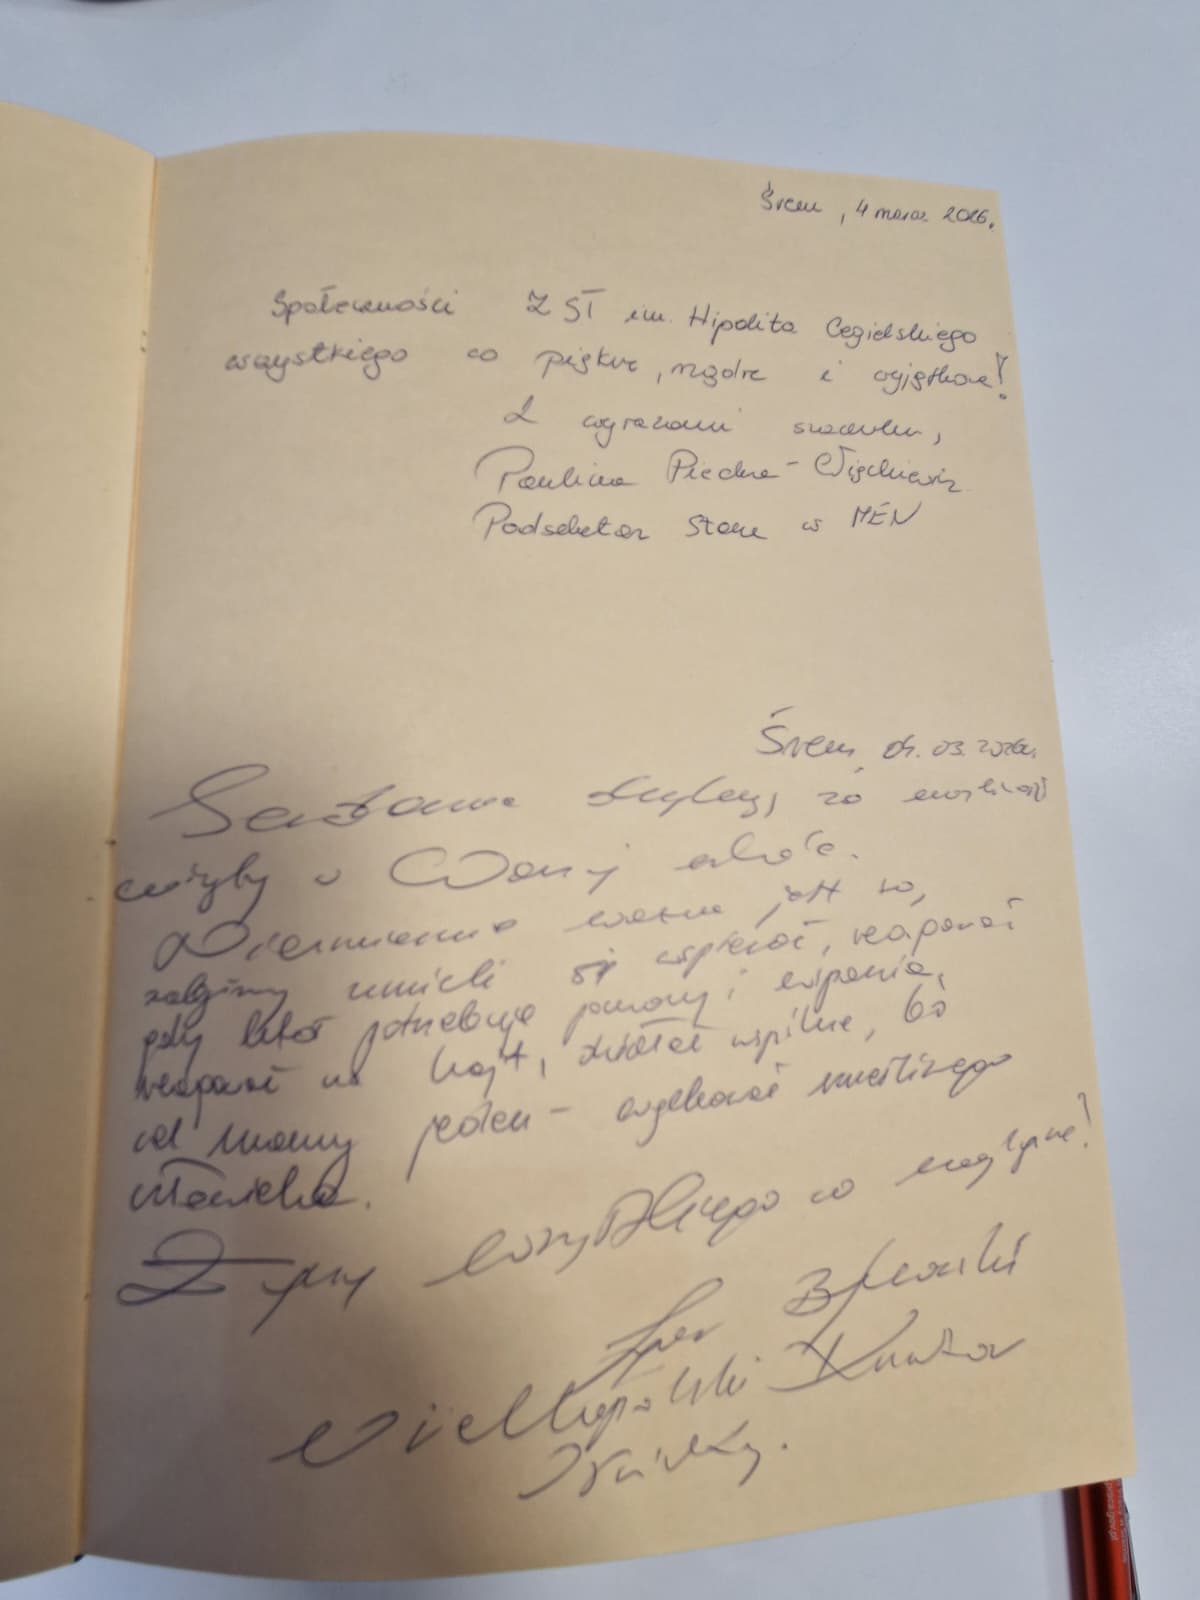 Śrem, 4 marca 2026.
Społeczności ZST im. Hipolita Cegielskiego
wszystkiego co piękne, mądre i wyjątkowe!
Z wyrazami szacunku,
Paulina Piechna-Więckiewicz
Podsekretarz Stanu w MEN
Śrem, 04.03.2026r.
Serdecznie dziękuję za możliwość
wizyty w Waszej szkole.
Niezmiernie ważne jest to,
żebyśmy umieli się wspierać, reagować
gdy ktoś potrzebuje pomocy i wsparcia,
reagować na hejt, działać wspólnie, bo
cel mamy jeden - wychować
człowieka.
Życzę wszystkiego co najlepsze!
Igor Bykowski
Wielkopolski Kurator
Oświaty.